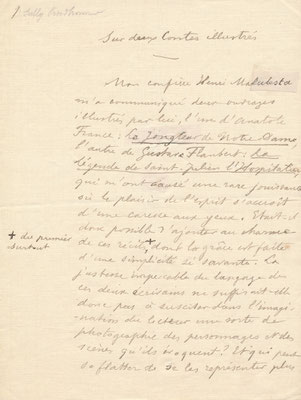 Sully Prudhomme
Sur deux Contes illustrés
Mon confrère Henri Malatesta
m'a communiqué deux ouvrages
illustrés par lui, l'un d'Anatole
France : Le Jongleur de Notre-Dame,
l'autre de Gustave Flaubert : La
légende de Saint Julien l'Hospitalier,
qui m'ont causé une rare jouissance
où le plaisir de l'esprit s'accroît
d'une caresse aux yeux. Était-il
donc possible d'ajouter au charme
+ du premier
surtout
de ces récits, + dont la grâce est faite
d'une simplicité si savante. La
justesse impeccable du langage de
ces deux écrivains ne suffisait-elle
donc pas à susciter dans l'imagi-
nation du lecteur une sorte de
photographie des personnages et des
scènes qu'ils évoquent ? Et qui peut
se flatter de se les représenter plus